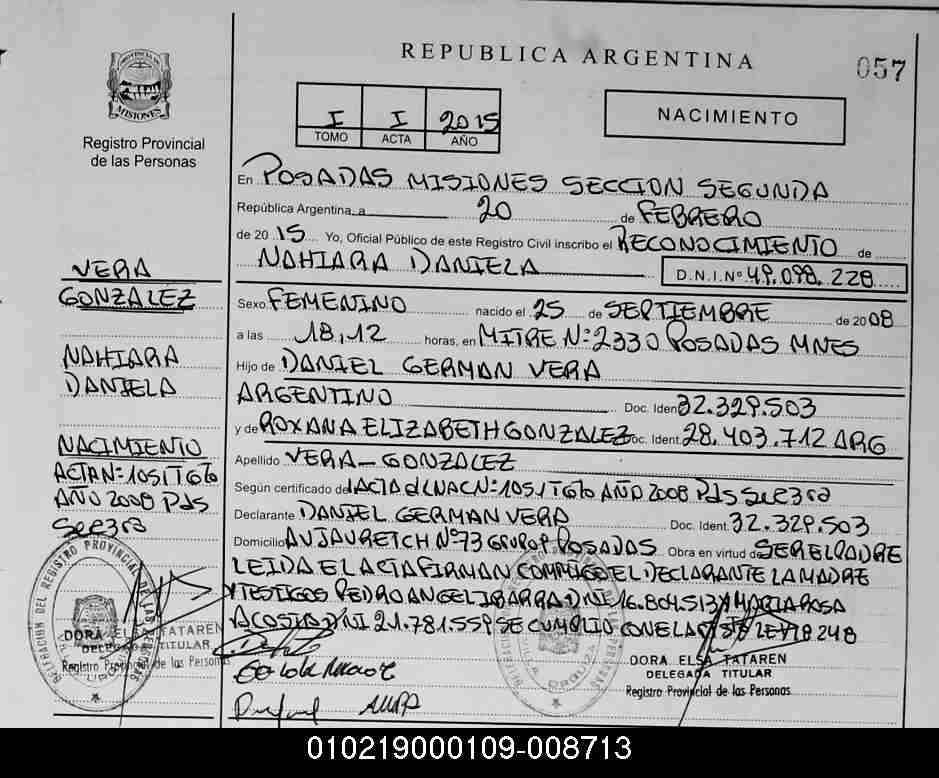 REPUBLICA ARGENTINA
057
PROVINCIA DE MISIONES
Registro Provincial
de las Personas
I I 2015
TOMO ACTA AÑO
NACIMIENTO
En POSADAS MISIONES SECCION SEGUNDA
República Argentina, a 20 de FEBRERO
de 2015 Yo, Oficial Público de este Registro Civil inscribo el RECONOCIMIENTO de
NAHIARA DANIELA D.N.I.Nº 49.098.228
Sexo FEMENINO nacido el 25 de SEPTIEMBRE de 2008
a las 18,12 horas, en MITRE Nº 2330 POSADAS MNES
Hijo de DANIEL GERMAN VERA
ARGENTINO Doc. Ident 32.329.503
y de ROXANA ELIZABETH GONZALEZ Doc. Ident. 28.403.712 ARG
Apellido VERA - GONZALEZ
Según certificado de ACTA d LNAC Nº 1051 Tº 6to AÑO 2008 Pds Sec 3ra
Declarante DANIEL GERMAN VERA Doc. Ident. 32.329.503
Domicilio Nº 73 GRUPO POSADAS Obra en virtud de SER EL PADRE
LEIDA EL ACTA FIRMAN CONMIGO EL DECLARANTE LA MADRE
Y TESTIGOS PEDRO ANGEL IBARRA DNI 16.804.513 Y MARIA ROSA
ACOSTA DNI 21.781.559 SE CUMPLIO CON EL LEY 18248
VERA
GONZALEZ
NAHIARA
DANIELA
NACIMIENTO
ACTA Nº 1051 Tº 6to
AÑO 2008 Pds
Sec 3ra
DORA ELSA TATAREN
DELEGADA TITULAR
Registro Provincial de las Personas
DORA ELSA TATAREN
DELEGADA TITULAR
Registro Provincial de las Personas
010219000109-008713